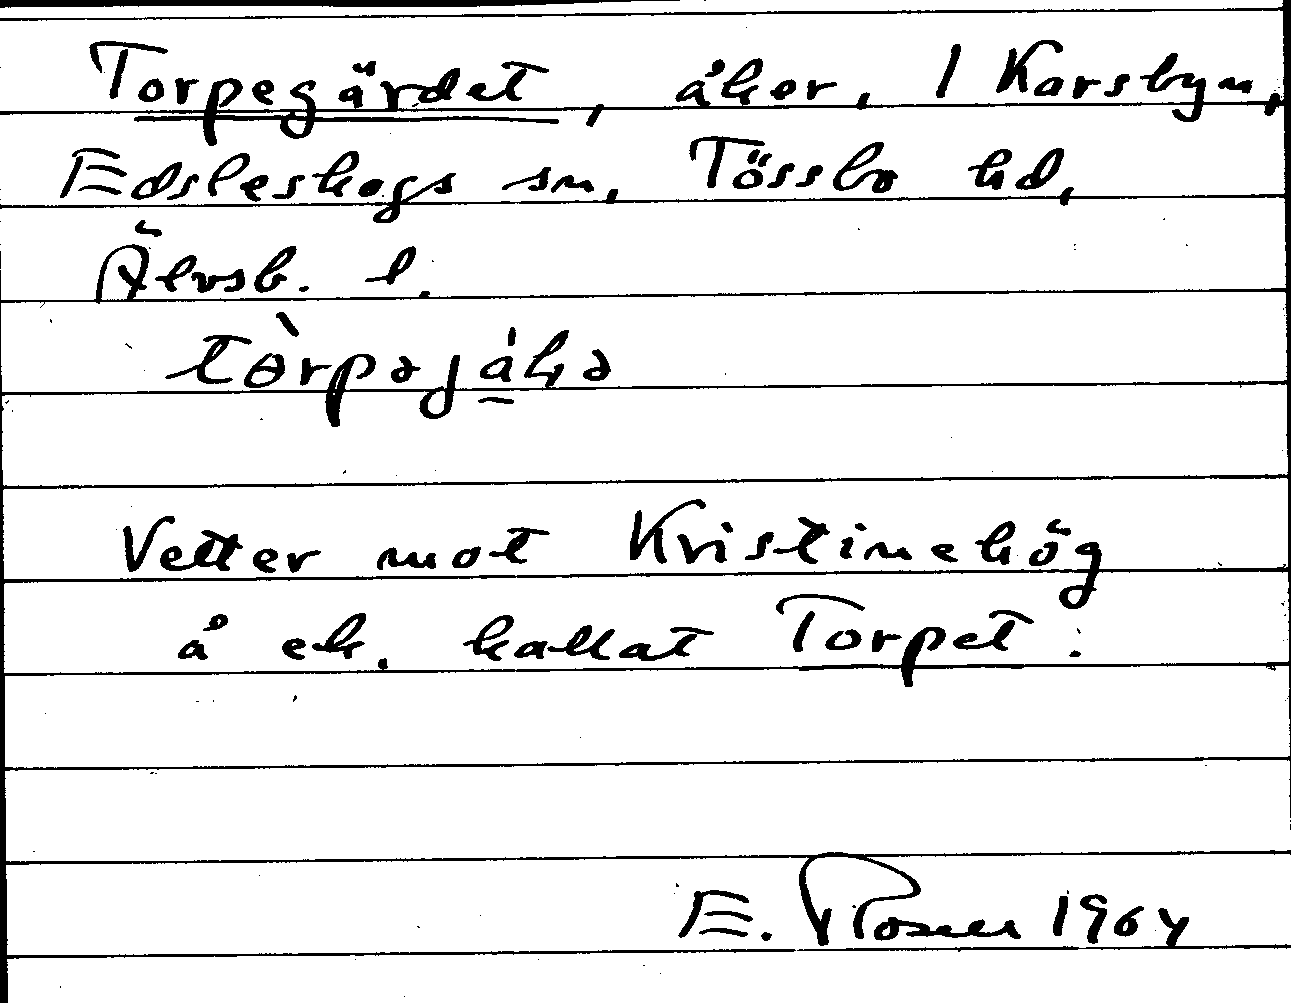 Torpegärdet, åker, 1 Karsbyn,
Edsleskogs sn, Tössbo hd,
Älvsb. l.
Vetter mot Kristinehög
å ek. kallat Torpet.
E. 1964